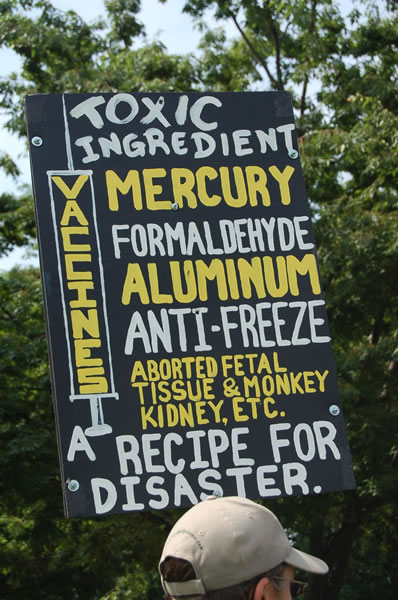 TOXIC
INGREDIENT
VACCINES
MERCURY
FORMALDEHYDE
ALUMINUM
ANTI-FREEZE
ABORTED FETAL
TISSUE & MONKEY
KIDNEY, ETC.
A RECIPE FOR
DISASTER.